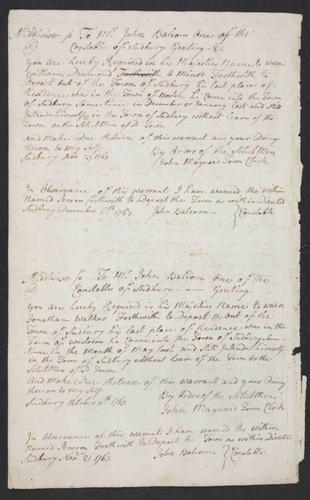 Middlesex ss To Mr. John Balcom One of the
Constable of Sudbury Greeting &c
you are hereby Required in his Majesties Name to warn
William a Minor Forthwith to
Depart out of the Town of Sudbury his last place of
Residence was in the Town of he Came into the Town
of Sudbury Sometime in December or January last and Still
Intrudes himself on the Town of Sudbury without leave of the
Town or the Selectmen of sd Town
And make Due Return of this warrant and your Doing
thereon to my Self By Order of the Selectmen
Sudbury Nov 21 1763 John Maynard Town Clerk
In Observance of this warrant I have warned the within
Named Person forthwith to Depart the Town as within Directed
Sudbury December 1763 John Balcom Constable
Middlesex ss To Mr. John Balcom One of the
Constable of Sudbury Greeting
you are hereby Required in his Majesties Name to warn
Jonathan Forthwith to Depart the Out of the
Town of Sudbury his last place of Residence was in the
Town of Weston he Came into the Town of Sudbury Some
time in the Month of May last and Still Intrudes himself
on the Town of Sudbury without Leave of the Town or the
Selectmen of sd Town.
And make Due Return of this warrant and your Doing
thereon to my Self By Order of the Selectmen
Sudbury October 1763 John Maynard Town Clerk
In observance of this warrant I have warned the within
Named Person Forthwith to Depart the Town as within Directed
Sudbury Novr. 21 1763 John Balcom Constable